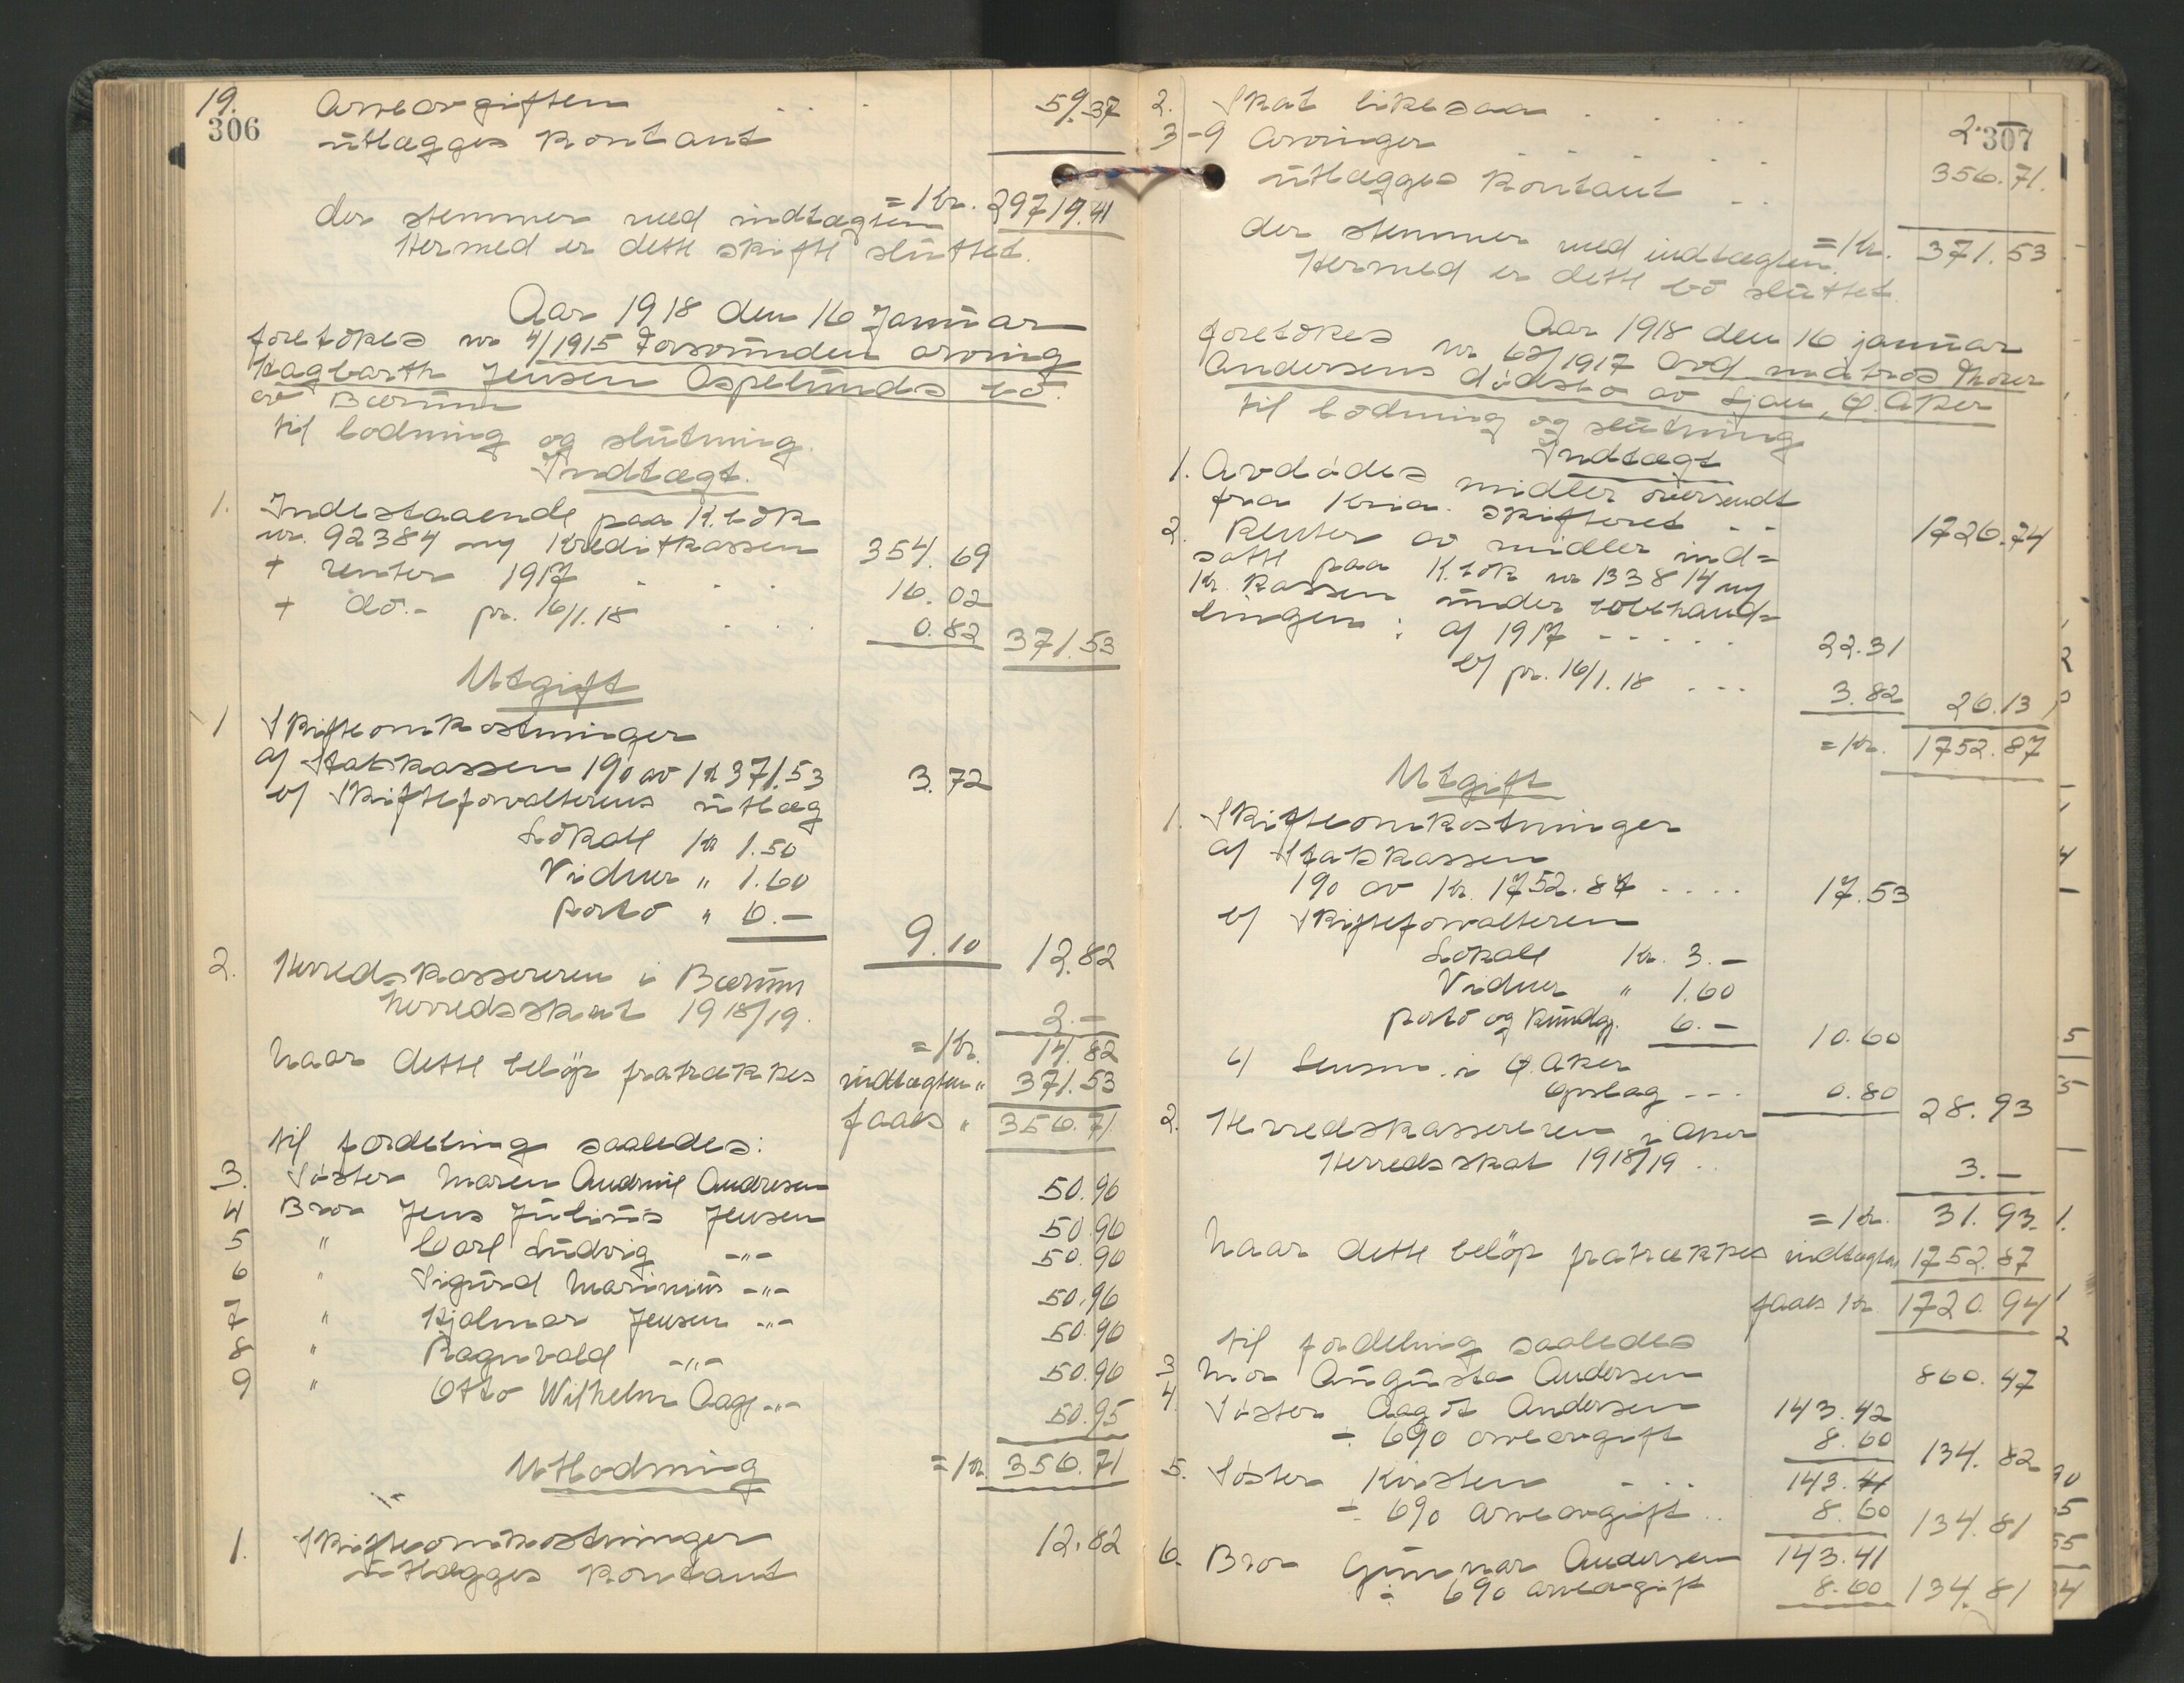 306
19. Arveavgiften . . . 59.37
utlægges kontant
= Kr. 29719.41
der stemmer med indtægten
Hermed er dette skifte sluttet.
Aar 1918 den 16 Januar
foretokes nr 4/1915 Forsvunden arving
Hagbarth Jensen Ospelunds bo.
av Bærum
til lodning og slutning.
Indtægt.
1. Indestaaende paa K.bok
nr. 92384 ny Kreditkassen 354.69
+ renter 1917 . . . 16.02
+ do.- pr. 16/1.18 . . . 0.82 371.53
Utgift
1 Skifteomkostninger
a/ Statskassen 1% av Kr 371.53 3.72
b/ Skifteforvalterens utlæg
Lokale Kr 1.50
Vidner " 1.60
porto " 6.— 9.10 12.82
2. Herredskassereren i Bærum
herredsskat 1918/19. 2.—
= Kr. 14.82
Naar dette beløp fratrækkes indtægten " 371.53
faaes " 356.71
til fordeling saaledes:
3. Søster Maren Andrine Andresen 50.96
4 Bror Jens Julius Jensen 50.96
5 " Carl Ludvig -"- 50.96
6 " Sigurd Marinius -"- 50.96
7 " Hjalmar Jensen -"- 50.96
8 " Ragnvald -"- 50.96
9 " Otto Wilhelm Aage -"- 50.95
= Kr. 356.71
Utlodning
1. Skifteomkostninger 12.82
utlægges kontant
307
2. Skat likesaa . . . . 2.—
3-9 Arvinger . . . . . . 356.71.
utlægges kontant . .
= Kr. 371.53
der stemmer med indtægten.
Hermed er dette bo sluttet.
Aar 1918 den 16 januar
foretokes nr 62/1917 avd matros Thorer
Andersens dødsbo av Ljan, Ø. Aker
til lodning og slutning
Indtægt
1. Avdødes midler oversendt
fra Kria. Skifteret . . 1726.74
2. Renter av midler ind=
satte paa K.bok nr 133814 ny
Kr. kassen under bobehand=
lingen: a/ 1917 - - - - - 22.31
b/ pr. 16/1.18 . . . 3.82 26.13
= Kr. 1752.87
Utgift
1. Skifteomkostninger
a/ Statskassen
1% av Kr. 1752.87 . . . . 17.53
b/ Skifteforvalteren
Lokale Kr. 3.—
Vidner " 1.60
porto og kundg. 6.— 10.60
c/ Lensm. i Ø. Aker
Opslag - - - 0.80 28.93
2. Herredskassereren i Aker
Herredsskat 1918/19 . . 3.—
= Kr. 31.93
Naar dette beløp fratrækkes indtægten 1752.87
faaes Kr. 1720.94
til fordeling saaledes
3 Mor Augusta Andersen 860.47
4. Søster Aagot Andersen 143.42
÷ 6% arveavgift 8.60 134.82
5. Søster Kirsten - . . . 143.41
÷ 6% arveavgift . . 8.60 134.81
6. Bror Gunnar Andersen 143.41
÷ 6% arveavgift 8.60 134.81